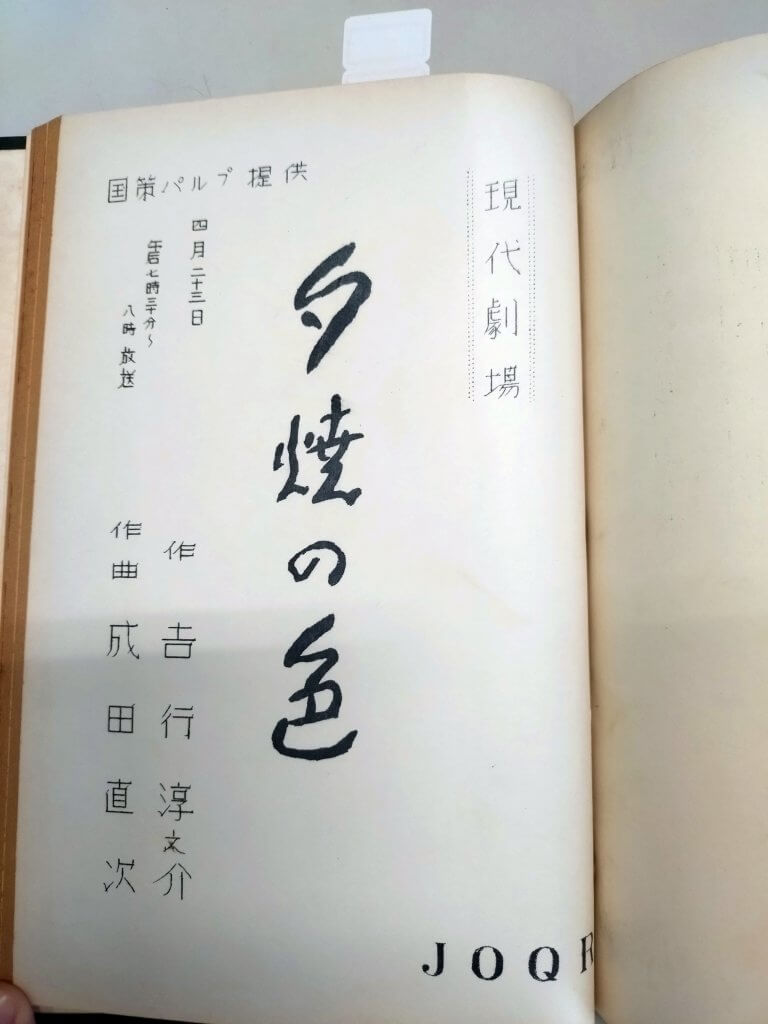 現代劇場
夕焼の色
国策パルプ提供
四月二十三日
午后七時三十分~
八時 放送
作 吉行淳文介
作曲 成田直次
JOQR